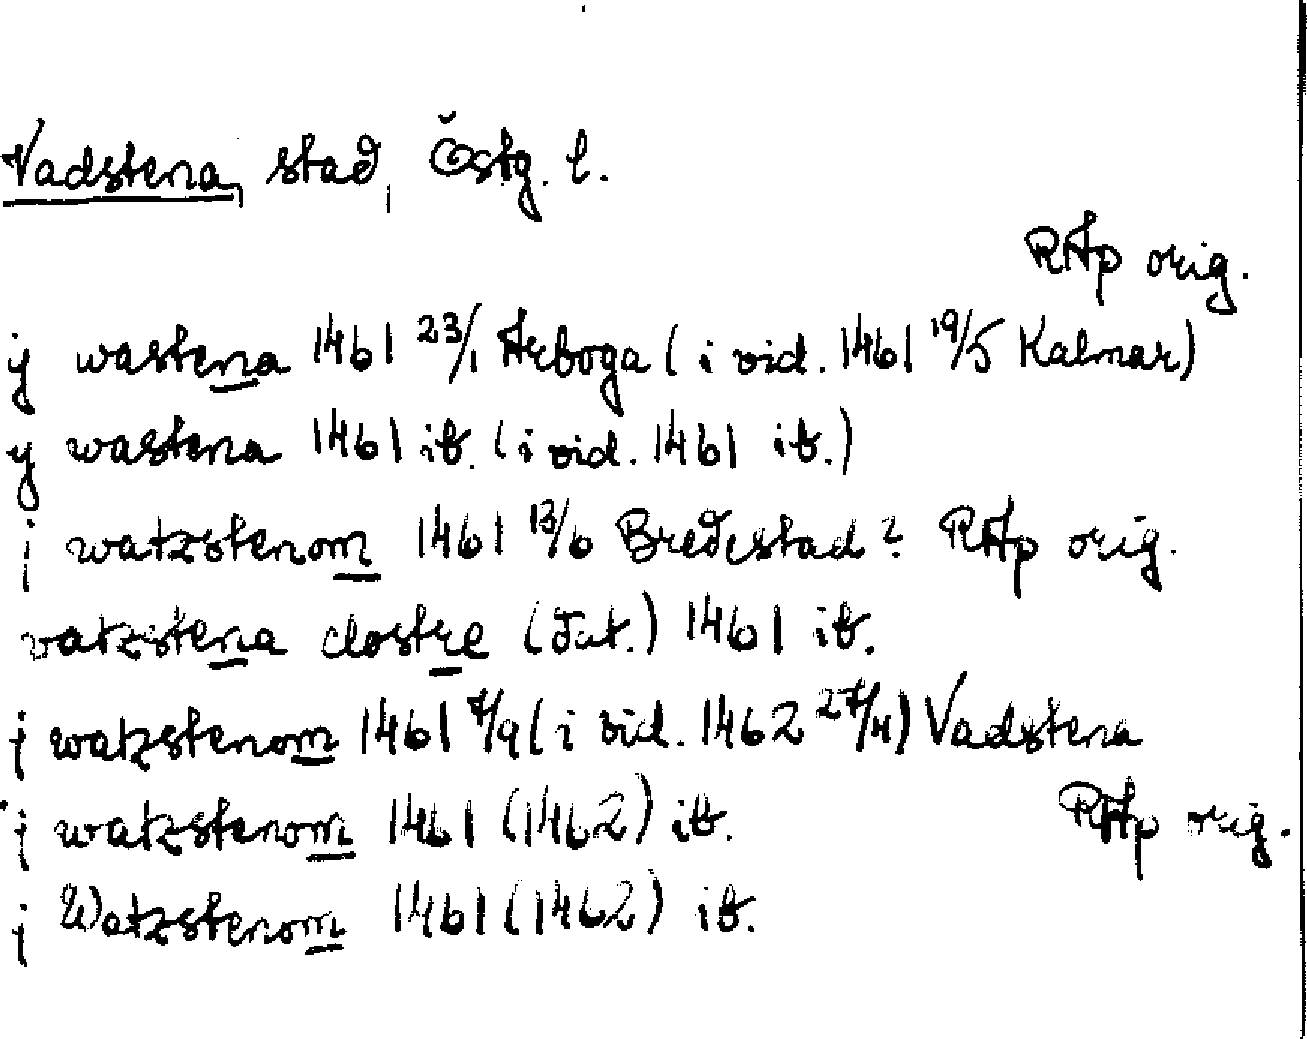 Vadstena, stad, Östg. l.
RAp orig.
ij wastena 1461 23/1 Arboga (i vid. 1461 19/5 Kalmar)
y wastena 1461 ib. (i vid. 1461 ib.)
j watzstenom 1461 13/6 Bredestad? RAp orig.
vatzstena clostre (dat.) 1461 ib.
j watzstenom 1461 7/9 (i vid. 1462 27/4) Vadstena
j watzstenom 1461 (1462) ib. RAp orig.
j Watzstenom 1461 (1462) ib.